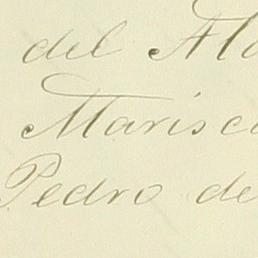 del
Marisc
Pedro de